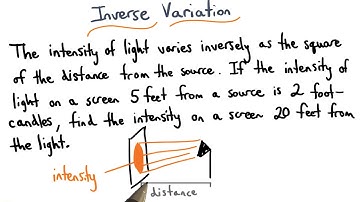 Inverse Variation
The intensity of light varies inversely as the square
of the distance from the source. If the intensity of
light on a screen 5 feet from a source is 2 foot-
candles, find the intensity on a screen 20 feet from
the light.
intensity
distance